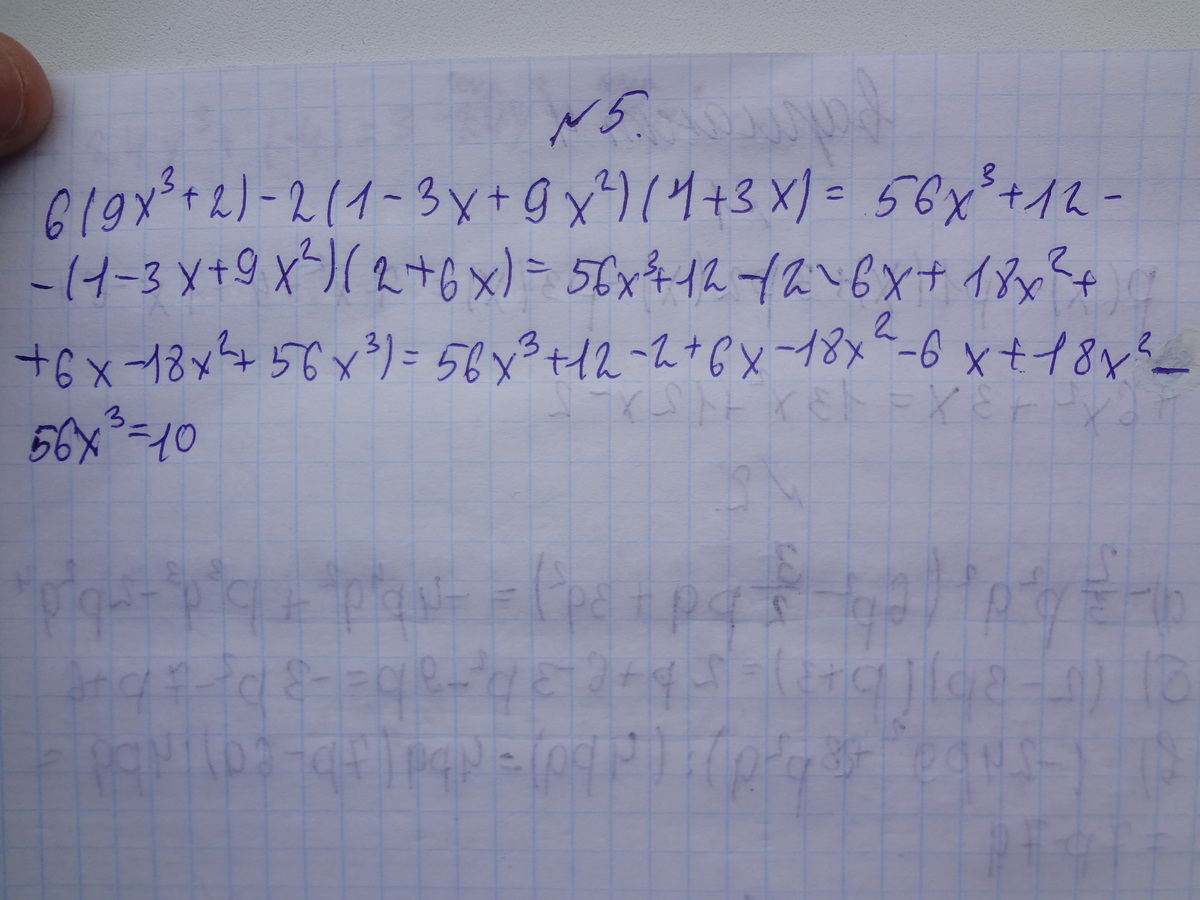 №5.
6(9x³+2)-2(1-3x+9x²)(1+3x)= 56x³+12-
-(1-3x+9x²)(2+6x)= 56x³+12-(2-6x+18x²+
+6x-18x²+56x³)= 56x³+12-2+6x-18x²-6x+18x²-
56x³=10